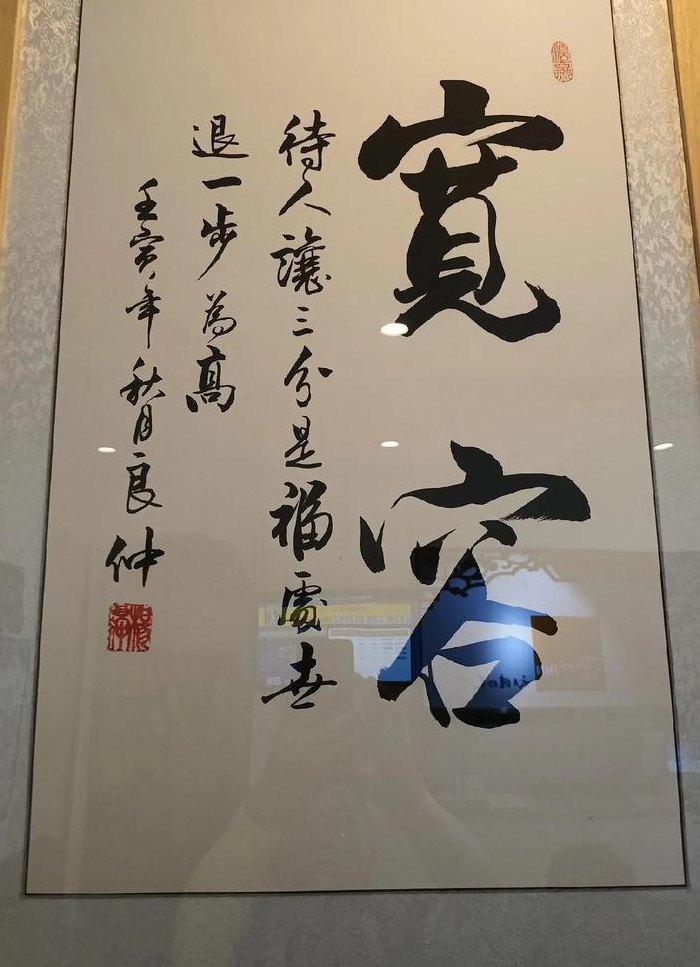 寬容
待人讓三分是福處世
退一步為高
壬寅年秋月良仲